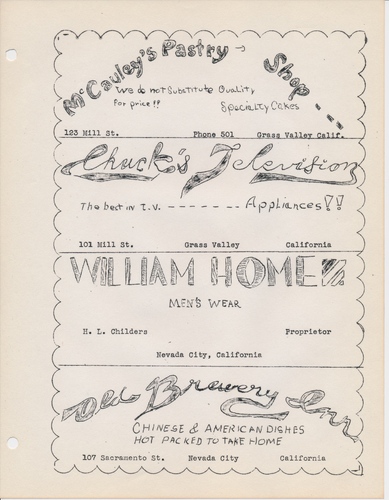 McCauley's Pastry Shop
We do not Substitute Quality
For price!!
Specialty Cakes
123 Mill St. Phone 501 Grass Valley Calif.
Chuck's Television
The best in T.V. ------- Appliances!!
101 Mill St. Grass Valley California
WILLIAM HOME
MEN'S WEAR
H. L. Childers Proprietor
Nevada City, California
Old Brewery Inn
CHINESE & AMERICAN DISHES
HOT PACKED TO TAKE HOME
107 Sacramento St. Nevada City California